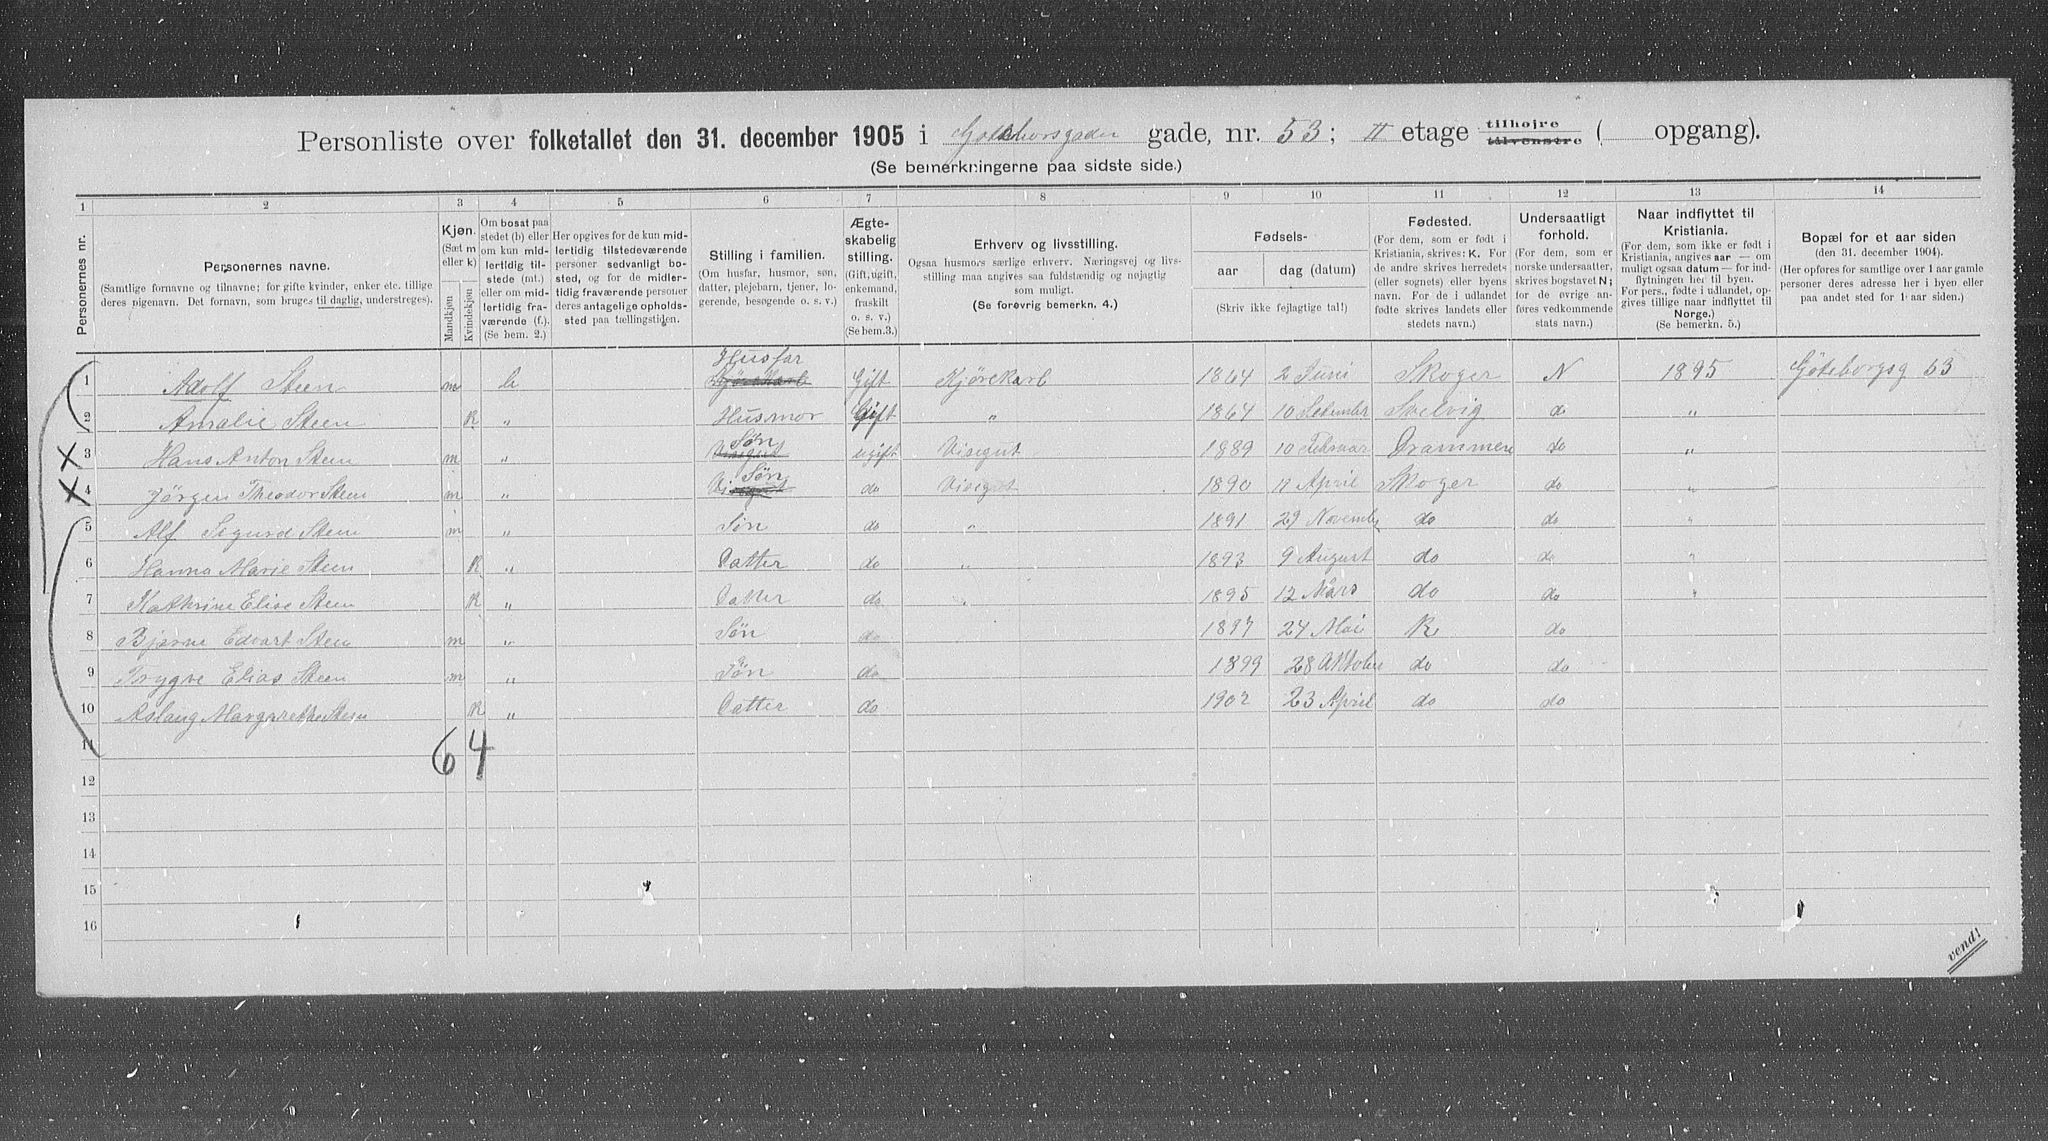 Personliste over folketallet den 31. december 1905 i Goteborsgaden gade, nr. 53; II etage tilhøjre tilvenstre ( opgang).
(Se bemerkningerne paa sidste side.)
1 2 3 4 5 6 7 8 9 10 11 12 13 14
Personernes nr.
Personernes navne.
(Samtlige fornavne og tilnavne; for gifte kvinder, enker etc. tillige deres pigenavn. Det fornavn, som bruges til daglig, understreges).
Kjøn.
(Sæt m eller k)
Mandkjøn
Kvindekjøn
Om bosat paa stedet (b) eller om kun midlertidig tilstede (mt.) eller om midlertidig fraværende (f.). (Se bem. 2.)
Her opgives for de kun midlertidig tilstedeværende personer sedvanlig bosted, og for de midlertidig fraværende personer det antagelige opholdssted paa tællingstiden.
Stilling i familien.
(Om husfar, husmor, søn, datter, plejebarn, tjener, logerende, besøgende o. s. v.)
Ægteskabelig stilling.
(Gift, ugift, enkemand, fraskilt o. s. v.) (Se bem. 3.)
Erhverv og livsstilling.
Ogsaa husmors særlige erhverv. Næringsvej og livsstilling maa angives saa fuldstændig og nøjagtig som muligt.
(Se forøvrig bemerkn. 4.)
Fødsels-
aar
dag (datum)
(Skriv ikke fejlagtige tal!)
Fødested.
(For dem, som er født i Kristiania, skrives: K. For de andre skrives herredets (eller sognets) eller byens navn. For de i udlandet fødte skrives landets eller stedets navn.)
Undersaatligt forhold.
(For dem, som er norske undersaatter, skrives bogstavet N; for de øvrige anføres vedkommende stats navn.)
Naar indflyttet til Kristiania.
(For dem, som ikke er født i Kristiania, angives aar — om muligt ogsaa datum — for indflytningen her til byen.
For pers., fødte i udlandet, opgives tillige naar indflyttet til Norge.)
(Se bemerkn. 5.)
Bopæl for et aar siden
(den 31. december 1904).
(Her opføres for samtlige over 1 aar gamle personer deres adresse her i byen eller paa andet sted for 1 aar siden.)
1 Adolf Steen m b Husfar Kjørekarl Gift Kjørekarl 1864 2 Juni Skoger N 1895 Göteborgsg 53
2 Amalie Steen K " Husmor Gift " 1864 10 Svelvig do "
3 Hans Anton Steen m " Søn Visegut ugift Visegut 1889 10 Februar Drammen do "
4 Jörgen Theodor Steen m " Søn Visegut do Visegut 1890 April Skoger do "
5 Alf Sigurd Steen m " Søn do " 1891 29 Novembr do do "
6 Hanna Marie Steen K " Datter do " 1893 9 August do do "
7 Kathrine Elise Steen K " Datter do " 1895 12 Mårs do do "
8 Bjarne Edvart Steen m " Søn do 1897 24 Mai K do
9 Trygve Elias Steen m " Søn do 1899 28 Oktober do do
10 Aslaug Margrethe Steen K " Datter do 1902 23 April do do
11 6 4
12
13
14
15
16
vend!